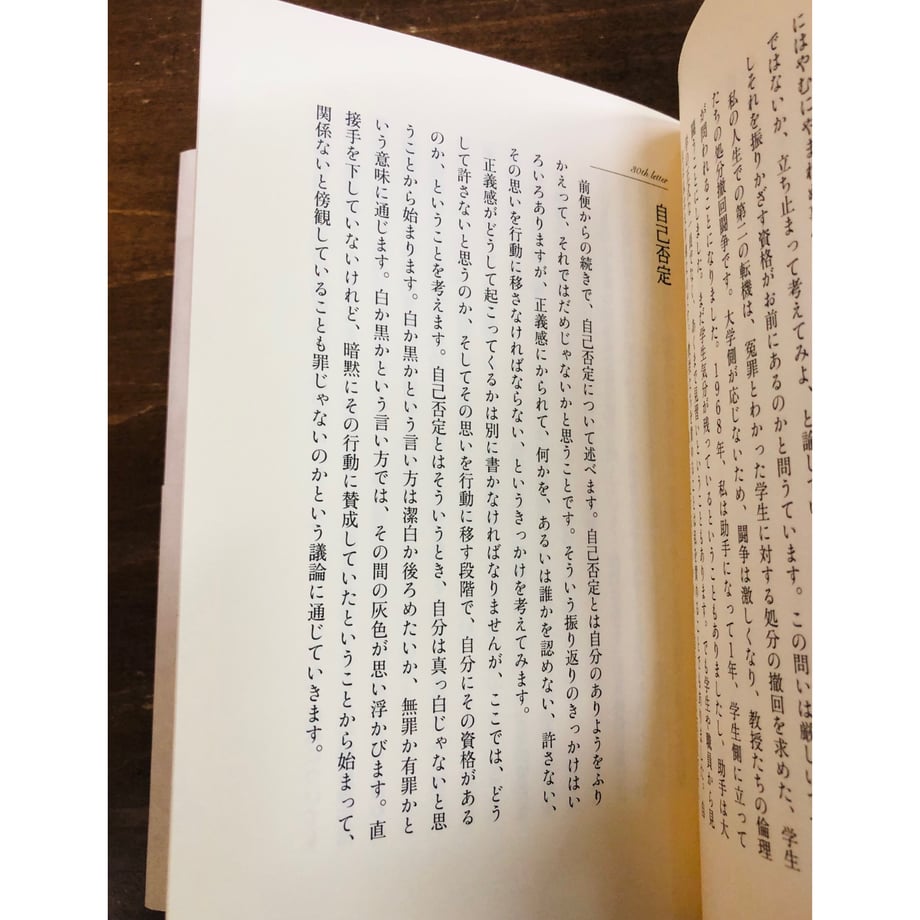 にはやむにやまれぬ
ではないか、立ち止まって考えてみよ、と諭して
しそれを振りかざす資格がお前にあるのかと問うています。この問いは厳しい
私の人生での第二の転機は、冤罪とわかった学生に対する処分の撤回を求めた、学生
たちの処分撤回闘争です。大学側が応じないため、闘争は激しくなり、教授たちの倫理
が問われることになりました。1968年、私は助手になって1年、学生側に立って
まだ学生気分が残っているということもありましたし、助手は大
でも学生や職員から見
30th letter
自己否定
前便からの続きで、自己否定について述べます。自己否定とは自分のありようをふり
かえって、それではだめじゃないかと思うことです。そういう振り返りのきっかけはい
ろいろありますが、正義感にかられて、何かを、あるいは誰かを認めない、許さない、
その思いを行動に移さなければならない、というきっかけを考えてみます。
正義感がどうして起こってくるかは別に書かなければなりませんが、ここでは、どう
して許さないと思うのか、そしてその思いを行動に移す段階で、自分にその資格がある
のか、ということを考えます。自己否定とはそういうとき、自分は真っ白じゃないと思
うことから始まります。白か黒かという言い方は潔白か後ろめたいか、無罪か有罪かと
いう意味に通じます。白か黒かという言い方では、その間の灰色が思い浮かびます。直
接手を下していないけれど、暗黙にその行動に賛成していたということから始まって、
関係ないと傍観していることも罪じゃないのかという議論に通じていきます。